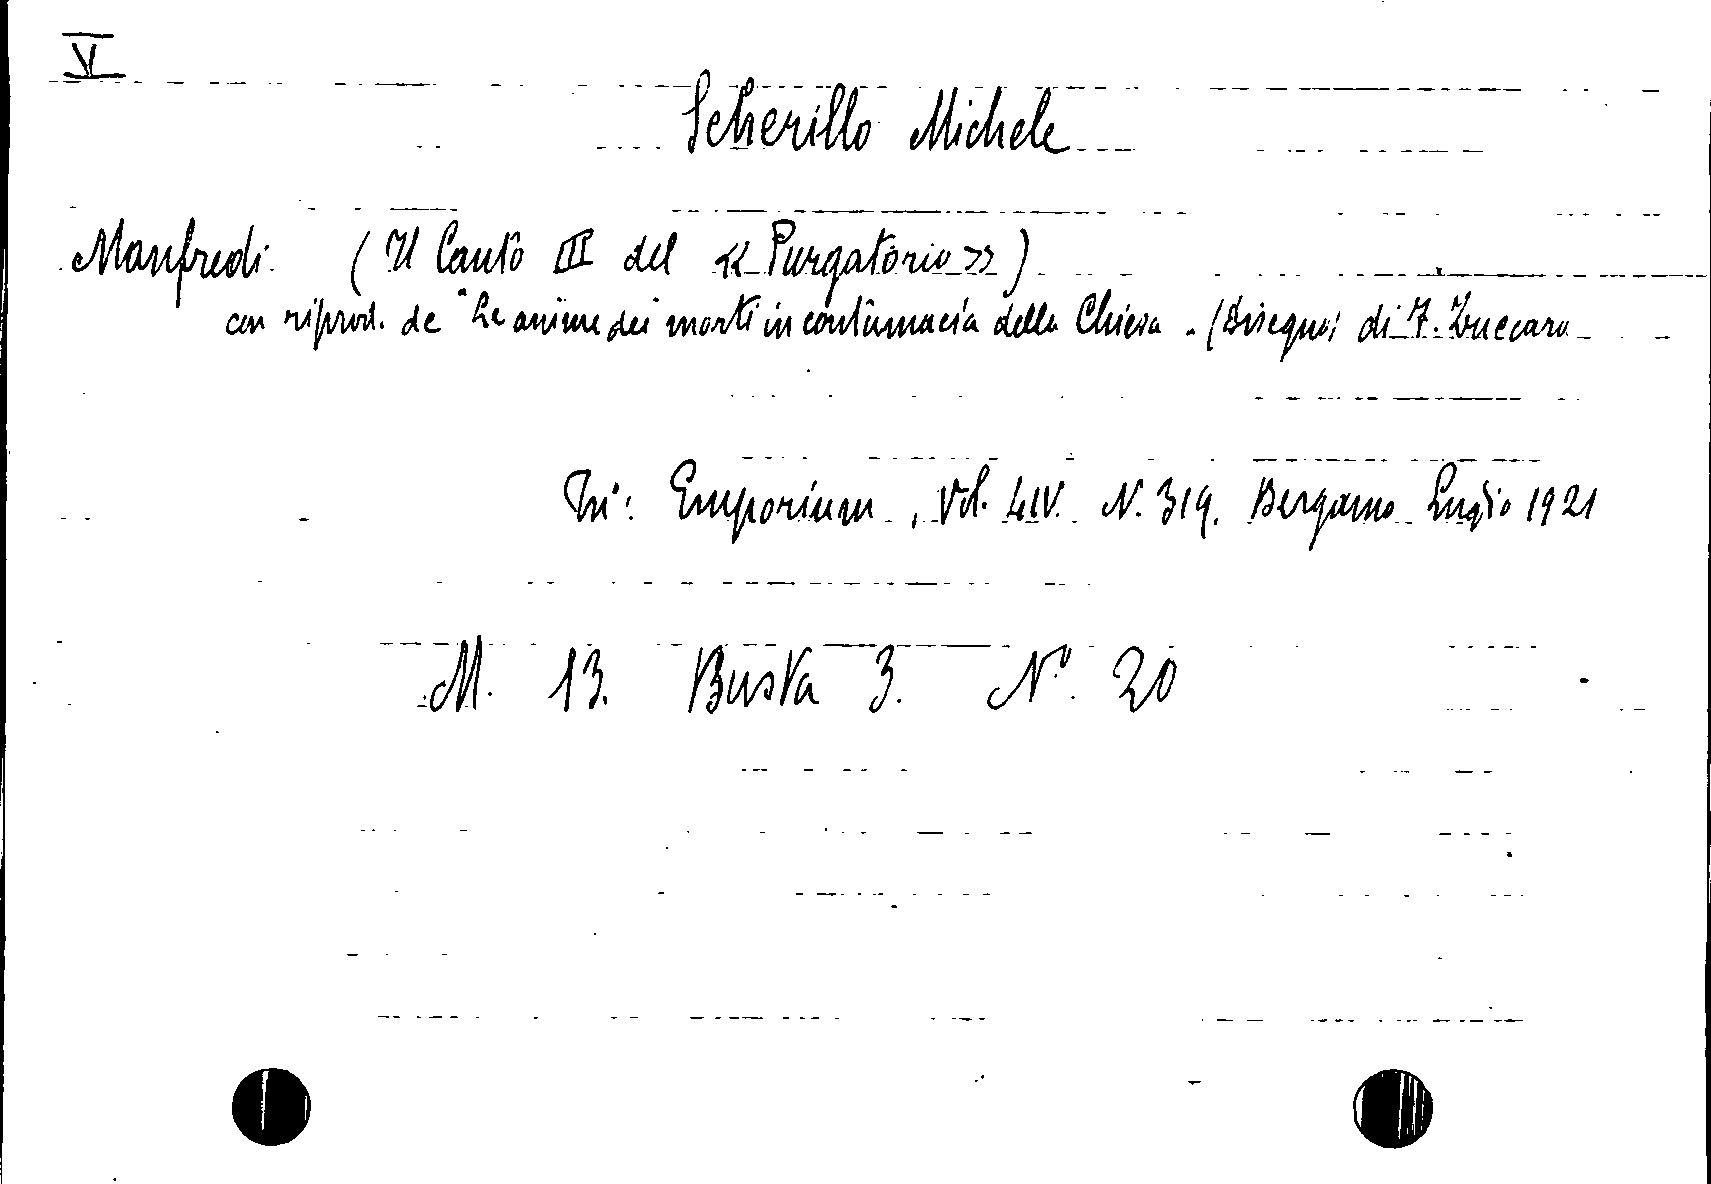 VI
Scherillo Michele
Manfredi. (Il Canto III del « Purgatorio »)
con riprod. de "Le anime dei morti in contumacia della Chiesa - (Disegno) di F. Zuccaro
In: Emporium, Vol. LIV. N. 319. Bergamo Luglio 1921
M. 13. Busta 3. Nº. 20